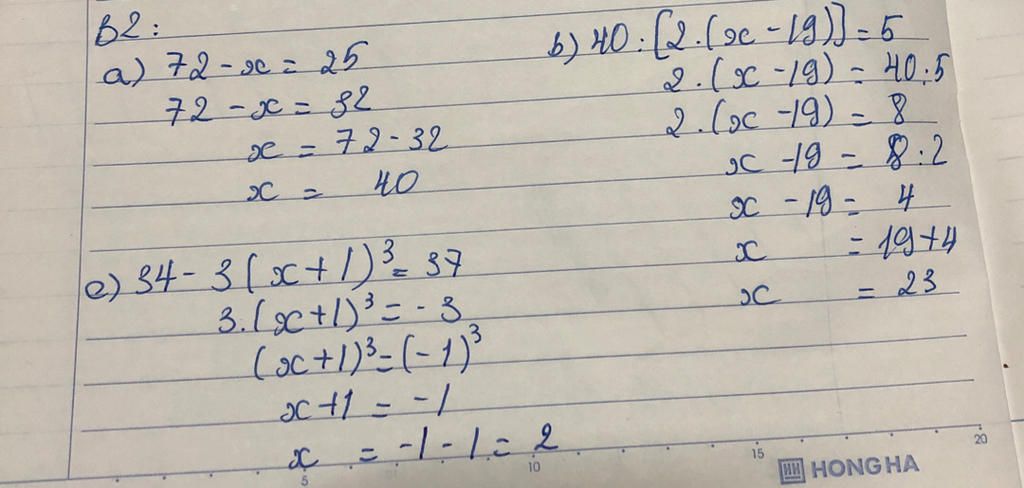 B2:
a) 72 - x = 25
72 - x = 32
x = 72 - 32
x = 40
b) 40 : [2.(x - 19)] = 5
2.(x - 19) = 40:5
2.(x - 19) = 8
x - 19 = 8:2
x - 19 = 4
x = 19+4
x = 23
c) 34 - 3(x+1)³ = 37
3.(x+1)³ = -3
(x+1)³ = (-1)³
x+1 = -1
x = -1 - 1 = 2
5 10 15 20
HH HONG HA